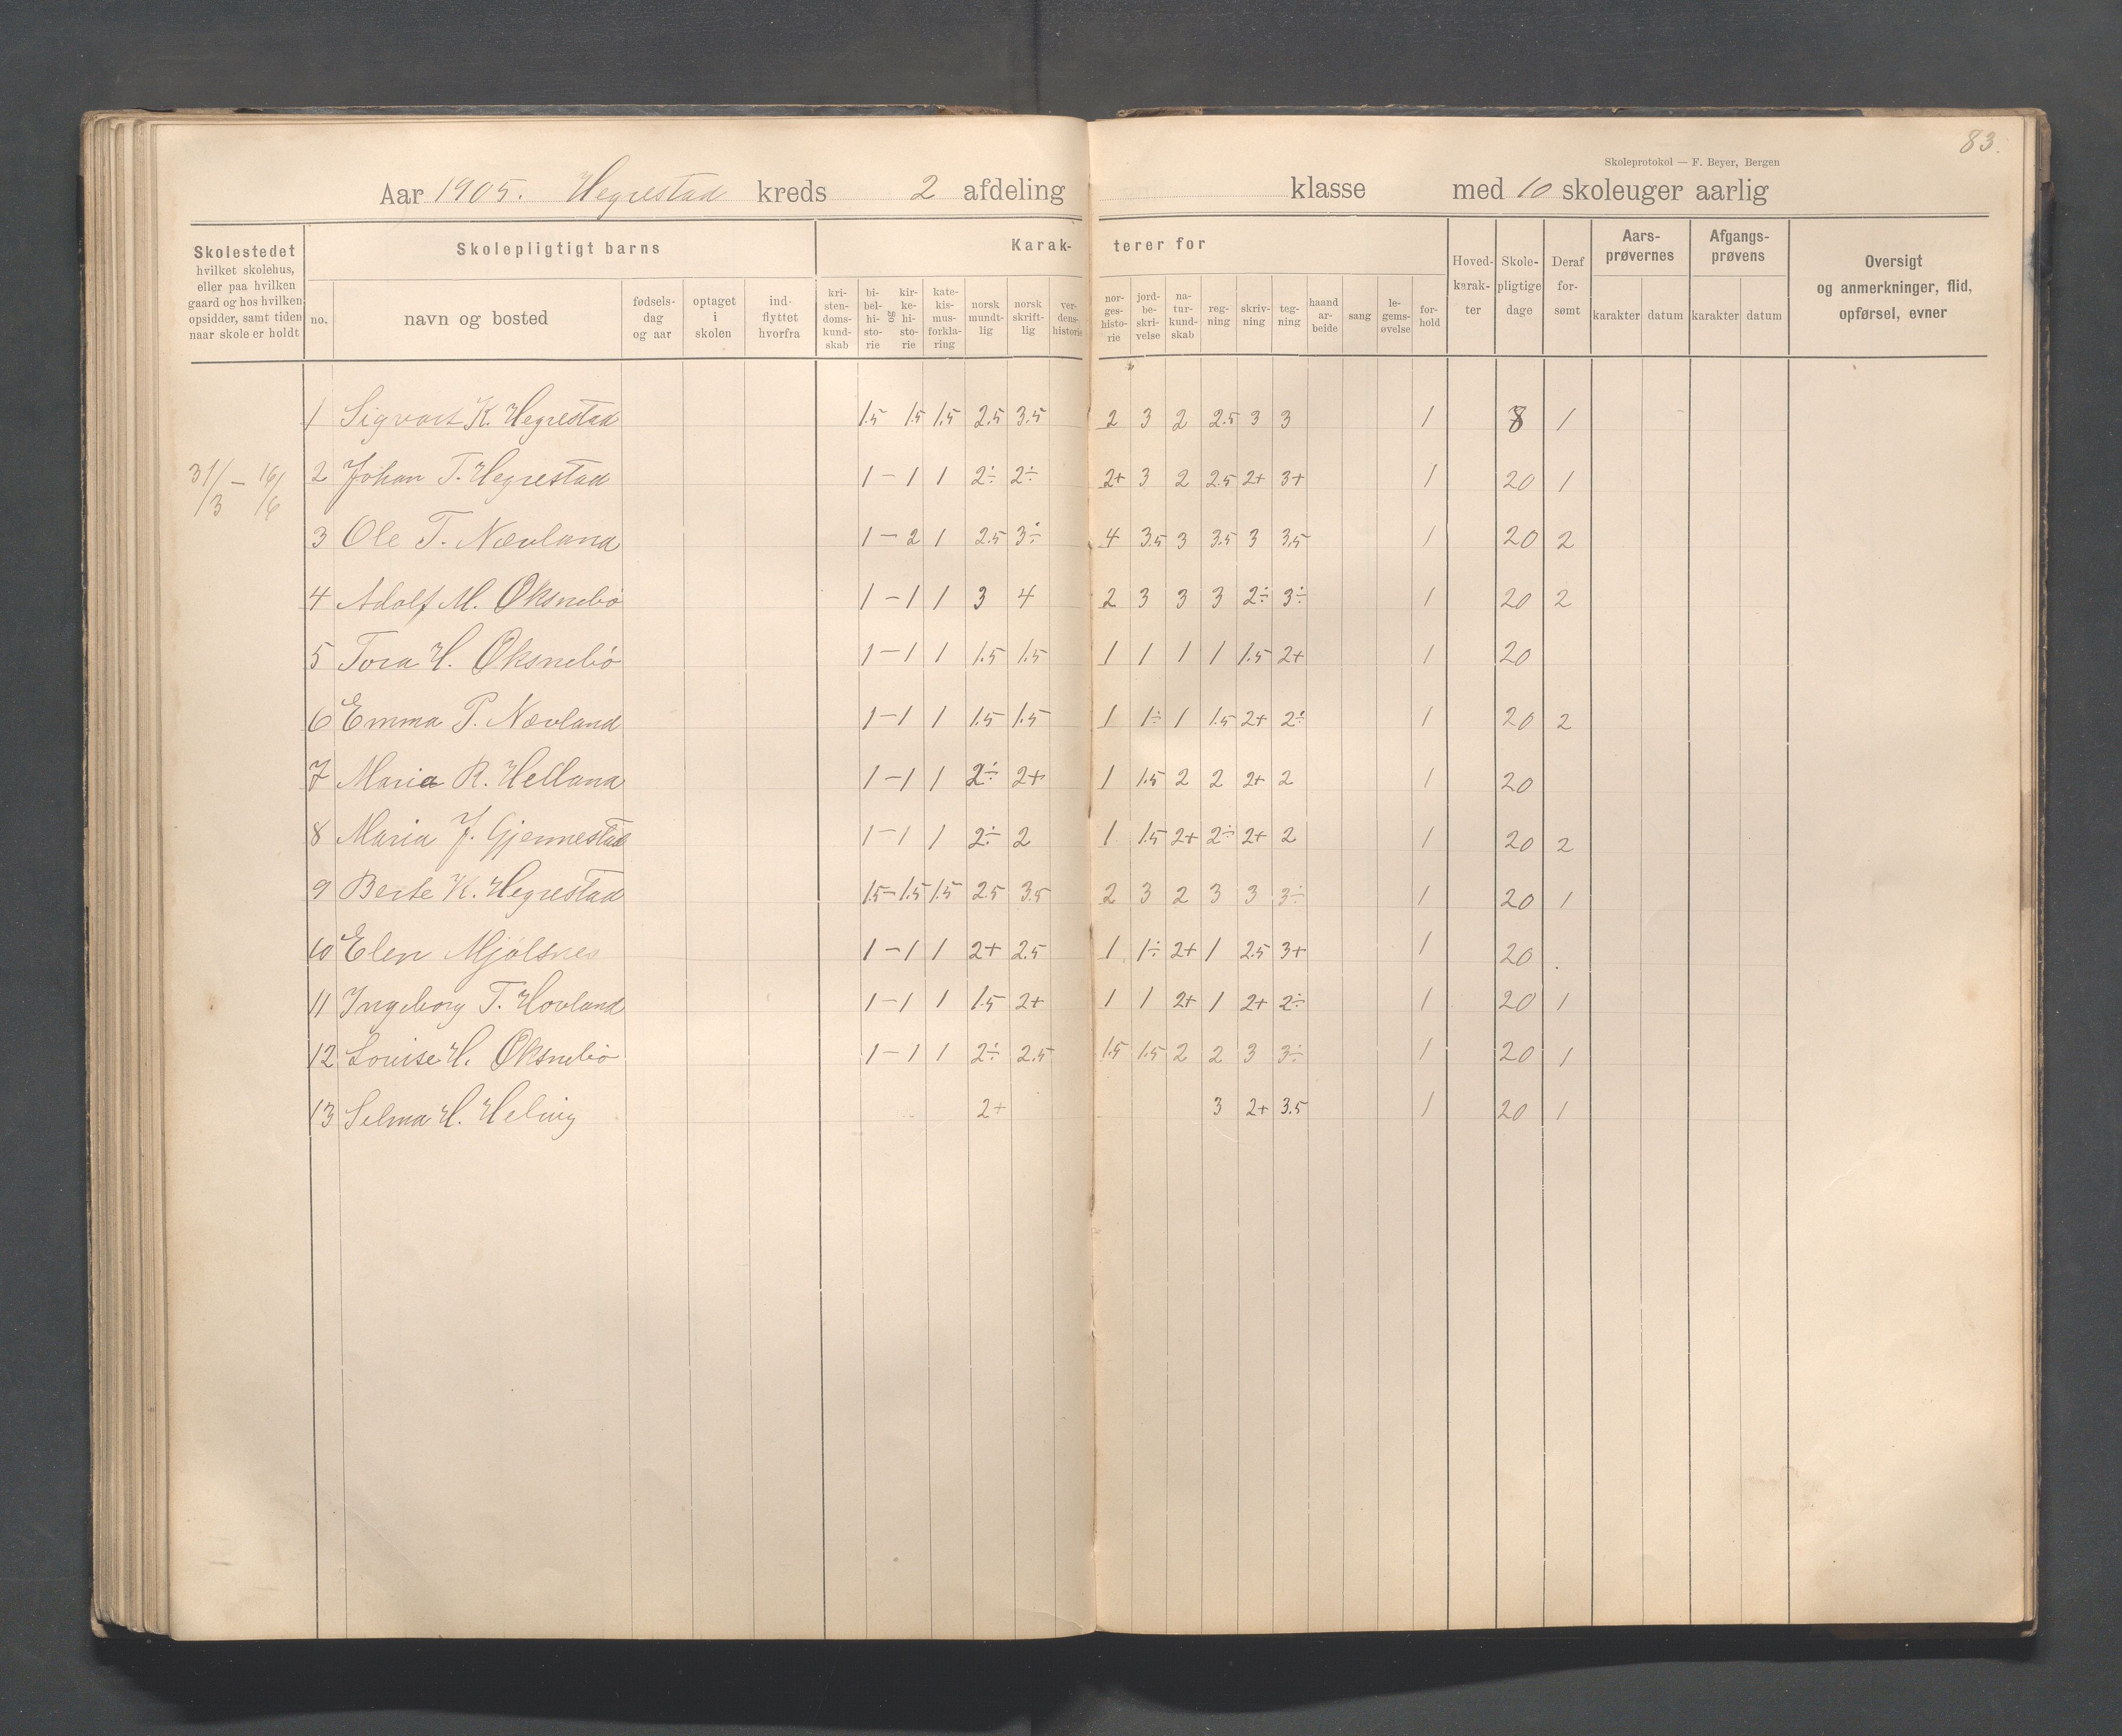 83.
Skoleprotokol — F. Beyer, Bergen
Aar 1905. Hegrestad kreds 2 afdeling klasse med 10 skoleuger aarlig
Skolestedet
hvilket skolehus,
eller paa hvilken
gaard og hos hvilken
opsidder, samt tiden
naar skole er holdt
Skolepligtigt barns
no.
navn og bosted
fødsels-
dag
og aar
optaget
i
skolen
ind-
flyttet
hvorfra
Karak-
terer for
kri-
sten-
doms-
kund-
skab
bi-
bel-
hi-
sto-
rie
og
kir-
ke-
hi-
sto-
rie
kate-
kis-
mus-
forkla-
ring
norsk
mundt-
lig
norsk
skrift-
lig
ver-
dens-
historie
nor-
ges-
histo-
rie
jord-
be-
skri-
velse
na-
tur-
kund-
skab
reg-
ning
skriv-
ning
teg-
ning
haand
ar-
beide
sang
le-
gems-
øvelse
for-
hold
Hoved-
karak-
ter
Skole-
pligtige
dage
Deraf
for-
sømt
Aars-
prøvernes
karakter datum
Afgangs-
prøvens
karakter datum
Oversigt
og anmerkninger, flid,
opførsel, evner
1 Sigvart K. Hegrestad 1.5 1.5 1.5 2.5 3.5 2 3 2 2.5 3 3 1 8 1
31/3 – 16/6
2 Johan T. Hegrestad 1 – 1 1 2÷ 2÷ 2+ 3 2 2.5 2+ 3+ 1 20 1
3 Ole T. Nævland 1 – 2 1 2.5 3÷ 4 3.5 3 3.5 3 3.5 1 20 2
4 Adolf M. Øksnebø 1 – 1 1 3 4 2 3 3 3 2÷ 3÷ 1 20 2
5 Tora H. Øksnebø 1 – 1 1 1.5 1.5 1 1 1 1 1.5 2+ 1 20
6 Emma P. Nævland 1 – 1 1 1.5 1.5 1 1÷ 1 1.5 2+ 2÷ 1 20 2
7 Maria R. Helland 1 – 1 1 2÷ 2+ 1 1.5 2 2 2+ 2 1 20
8 Maria J. Gjennestad 1 – 1 1 2÷ 2 1 1.5 2+ 2÷ 2+ 2 1 20 2
9 Berte K. Hegrestad 1.5 – 1.5 1.5 2.5 3.5 2 3 2 3 3 3÷ 1 20 1
10 Elen Mjølsnes 1 – 1 1 2+ 2.5 1 1÷ 2+ 1 2.5 3+ 1 20 .
11 Ingeborg T. Hovland 1 – 1 1 1.5 2+ 1 1 2+ 1 2+ 2÷ 1 20 1
12 Louise H. Øksnebø 1 – 1 1 2÷ 2.5 1.5 1.5 2 2 3 3÷ 1 20 1
13 Selma H. 2+ 3 2+ 3.5 1 20 1